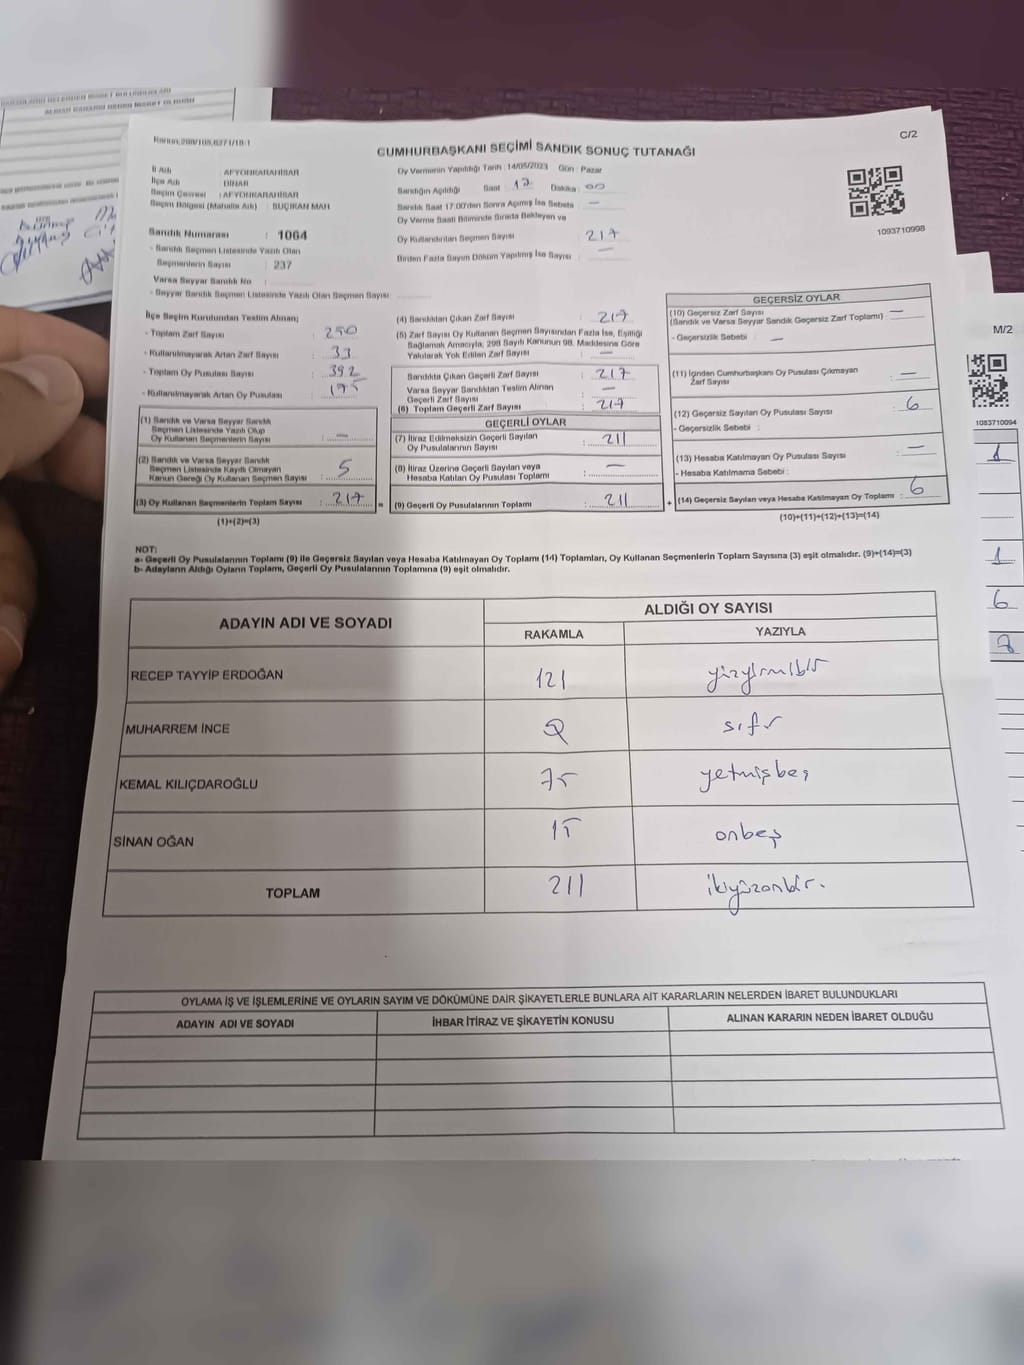 C/2
CUMHURBAŞKANI SEÇİMİ SANDIK SONUÇ TUTANAĞI
İl Adı : AFYONKARAHİSAR
İlçe Adı : DİNAR
Seçim Çevresi : AFYONKARAHİSAR
Seçim Bölgesi (Mahalle Adı) : SUÇIKAN MAH
Sandık Numarası : 1064
- Sandık Seçmen Listesinde Yazılı Olan
Seçmenlerin Sayısı : 237
Varsa Seyyar Sandık No :
- Seyyar Sandık Seçmen Listesinde Yazılı Olan Seçmen Sayısı
Oy Vermenin Yapıldığı Tarih : 14/05/2023 Gün : Pazar
Sandığın Açıldığı Saat 17 Dakika : 00
Sandık Saat 17.00'den Sonra Açılmış İse Sebebi : —
Oy Verme Saati Bitiminde Sırada Bekleyen ve
Oy Kullandırılan Seçmen Sayısı : 217
Birden Fazla Sayım Döküm Yapılmış İse Sayısı : —
1093710998
İlçe Seçim Kurulundan Teslim Alınan;
- Toplam Zarf Sayısı : 250
- Kullanılmayarak Artan Zarf Sayısı : 33
- Toplam Oy Pusulası Sayısı : 392
- Kullanılmayarak Artan Oy Pusulası : 175
(1) Sandık ve Varsa Seyyar Sandık
Seçmen Listesinde Yazılı Olup
Oy Kullanan Seçmenlerin Sayısı : —
(2) Sandık ve Varsa Seyyar Sandık
Seçmen Listesinde Kayıtlı Olmayan
Kanun Gereği Oy Kullanan Seçmen Sayısı : 5
(3) Oy Kullanan Seçmenlerin Toplam Sayısı : 217 =
(1)+(2)=(3)
(4) Sandıktan Çıkan Zarf Sayısı : 217
(5) Zarf Sayısı Oy Kullanan Seçmen Sayısından Fazla İse, Eşitliği
Sağlamak Amacıyla, 298 Sayılı Kanunun 98. Maddesine Göre
Yakılarak Yok Edilen Zarf Sayısı : —
Sandıkta Çıkan Geçerli Zarf Sayısı : 217
Varsa Seyyar Sandıktan Teslim Alınan
Geçerli Zarf Sayısı : —
(6) Toplam Geçerli Zarf Sayısı : 217
GEÇERLİ OYLAR
(7) İtiraz Edilmeksizin Geçerli Sayılan
Oy Pusulalarının Sayısı : 211
(8) İtiraz Üzerine Geçerli Sayılan veya
Hesaba Katılan Oy Pusulası Toplamı : —
(9) Geçerli Oy Pusulalarının Toplamı : 211 +
GEÇERSİZ OYLAR
(10) Geçersiz Zarf Sayısı
(Sandık ve Varsa Seyyar Sandık Geçersiz Zarf Toplamı) : —
- Geçersizlik Sebebi : —
(11) İçinden Cumhurbaşkanı Oy Pusulası Çıkmayan
Zarf Sayısı : —
(12) Geçersiz Sayılan Oy Pusulası Sayısı : 6
- Geçersizlik Sebebi :
(13) Hesaba Katılmayan Oy Pusulası Sayısı : —
- Hesaba Katılmama Sebebi :
(14) Geçersiz Sayılan veya Hesaba Katılmayan Oy Toplamı : 6
(10)+(11)+(12)+(13)=(14)
NOT:
a- Geçerli Oy Pusulalarının Toplamı (9) ile Geçersiz Sayılan veya Hesaba Katılmayan Oy Toplamı (14) Toplamları, Oy Kullanan Seçmenlerin Toplam Sayısına (3) eşit olmalıdır. (9)+(14)=(3)
b- Adayların Aldığı Oyların Toplamı, Geçerli Oy Pusulalarının Toplamına (9) eşit olmalıdır.
ADAYIN ADI VE SOYADI ALDIĞI OY SAYISI
RAKAMLA YAZIYLA
RECEP TAYYİP ERDOĞAN 121 yüzyirmibir
MUHARREM İNCE 0 sıfır
KEMAL KILIÇDAROĞLU 75 yetmişbeş
SİNAN OĞAN 15 onbeş
TOPLAM 211 ikiyüzonbir.
OYLAMA İŞ VE İŞLEMLERİNE VE OYLARIN SAYIM VE DÖKÜMÜNE DAİR ŞİKAYETLERLE BUNLARA AİT KARARLARIN NELERDEN İBARET BULUNDUKLARI
ADAYIN ADI VE SOYADI İHBAR İTİRAZ VE ŞİKAYETİN KONUSU ALINAN KARARIN NEDEN İBARET OLDUĞU
M/2
1083710094
1
1
6